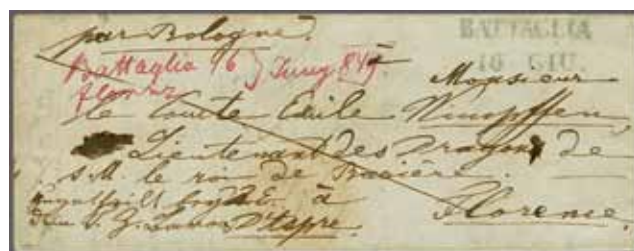 par Bologne.
BATTAGLIA
16 GIU.
Battaglia 16 } Juny 849.
Florenz
à
Monsieur
le Comte Edile
Lieutenant des Dragons de
s.M. le roi de Bavière.
à
D'Aspre. Florence.